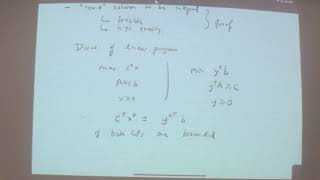 - "round" solution to be integral
feasible
high quality
} proof
Dual of linear program
max cᵀx | min yᵀb
Ax ≤ b | yᵀA ≥ c
x ≥ 0 | y ≥ 0
cᵀx* = y*ᵀ b
if both LPs are bounded